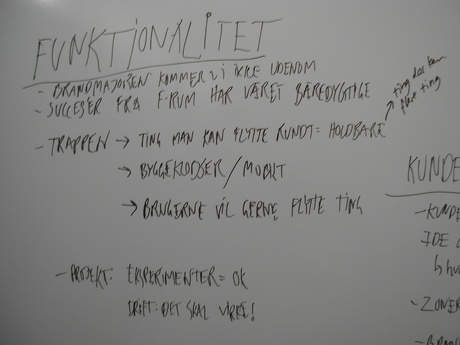 FUNKTIONALITET
- BRANDMAJOREN KOMMER VI IKKE UDENOM
- SUCCESER FRA F-RUM HAR VÆRET BÆREDYGTIGE
- TRAPPEN → TING MAN KAN FLYTTE RUNDT = HOLDBARE
ting der kan
flere ting
→ BYGGEKLODSER / MOBILT
→ BRUGERNE VIL GERNE FLYTTE TING
- PROJEKT: EKSPERIMENTER = OK
DRIFT: DET SKAL VIRKE!
KUNDE
- KUNDE
IDE
- ZONER